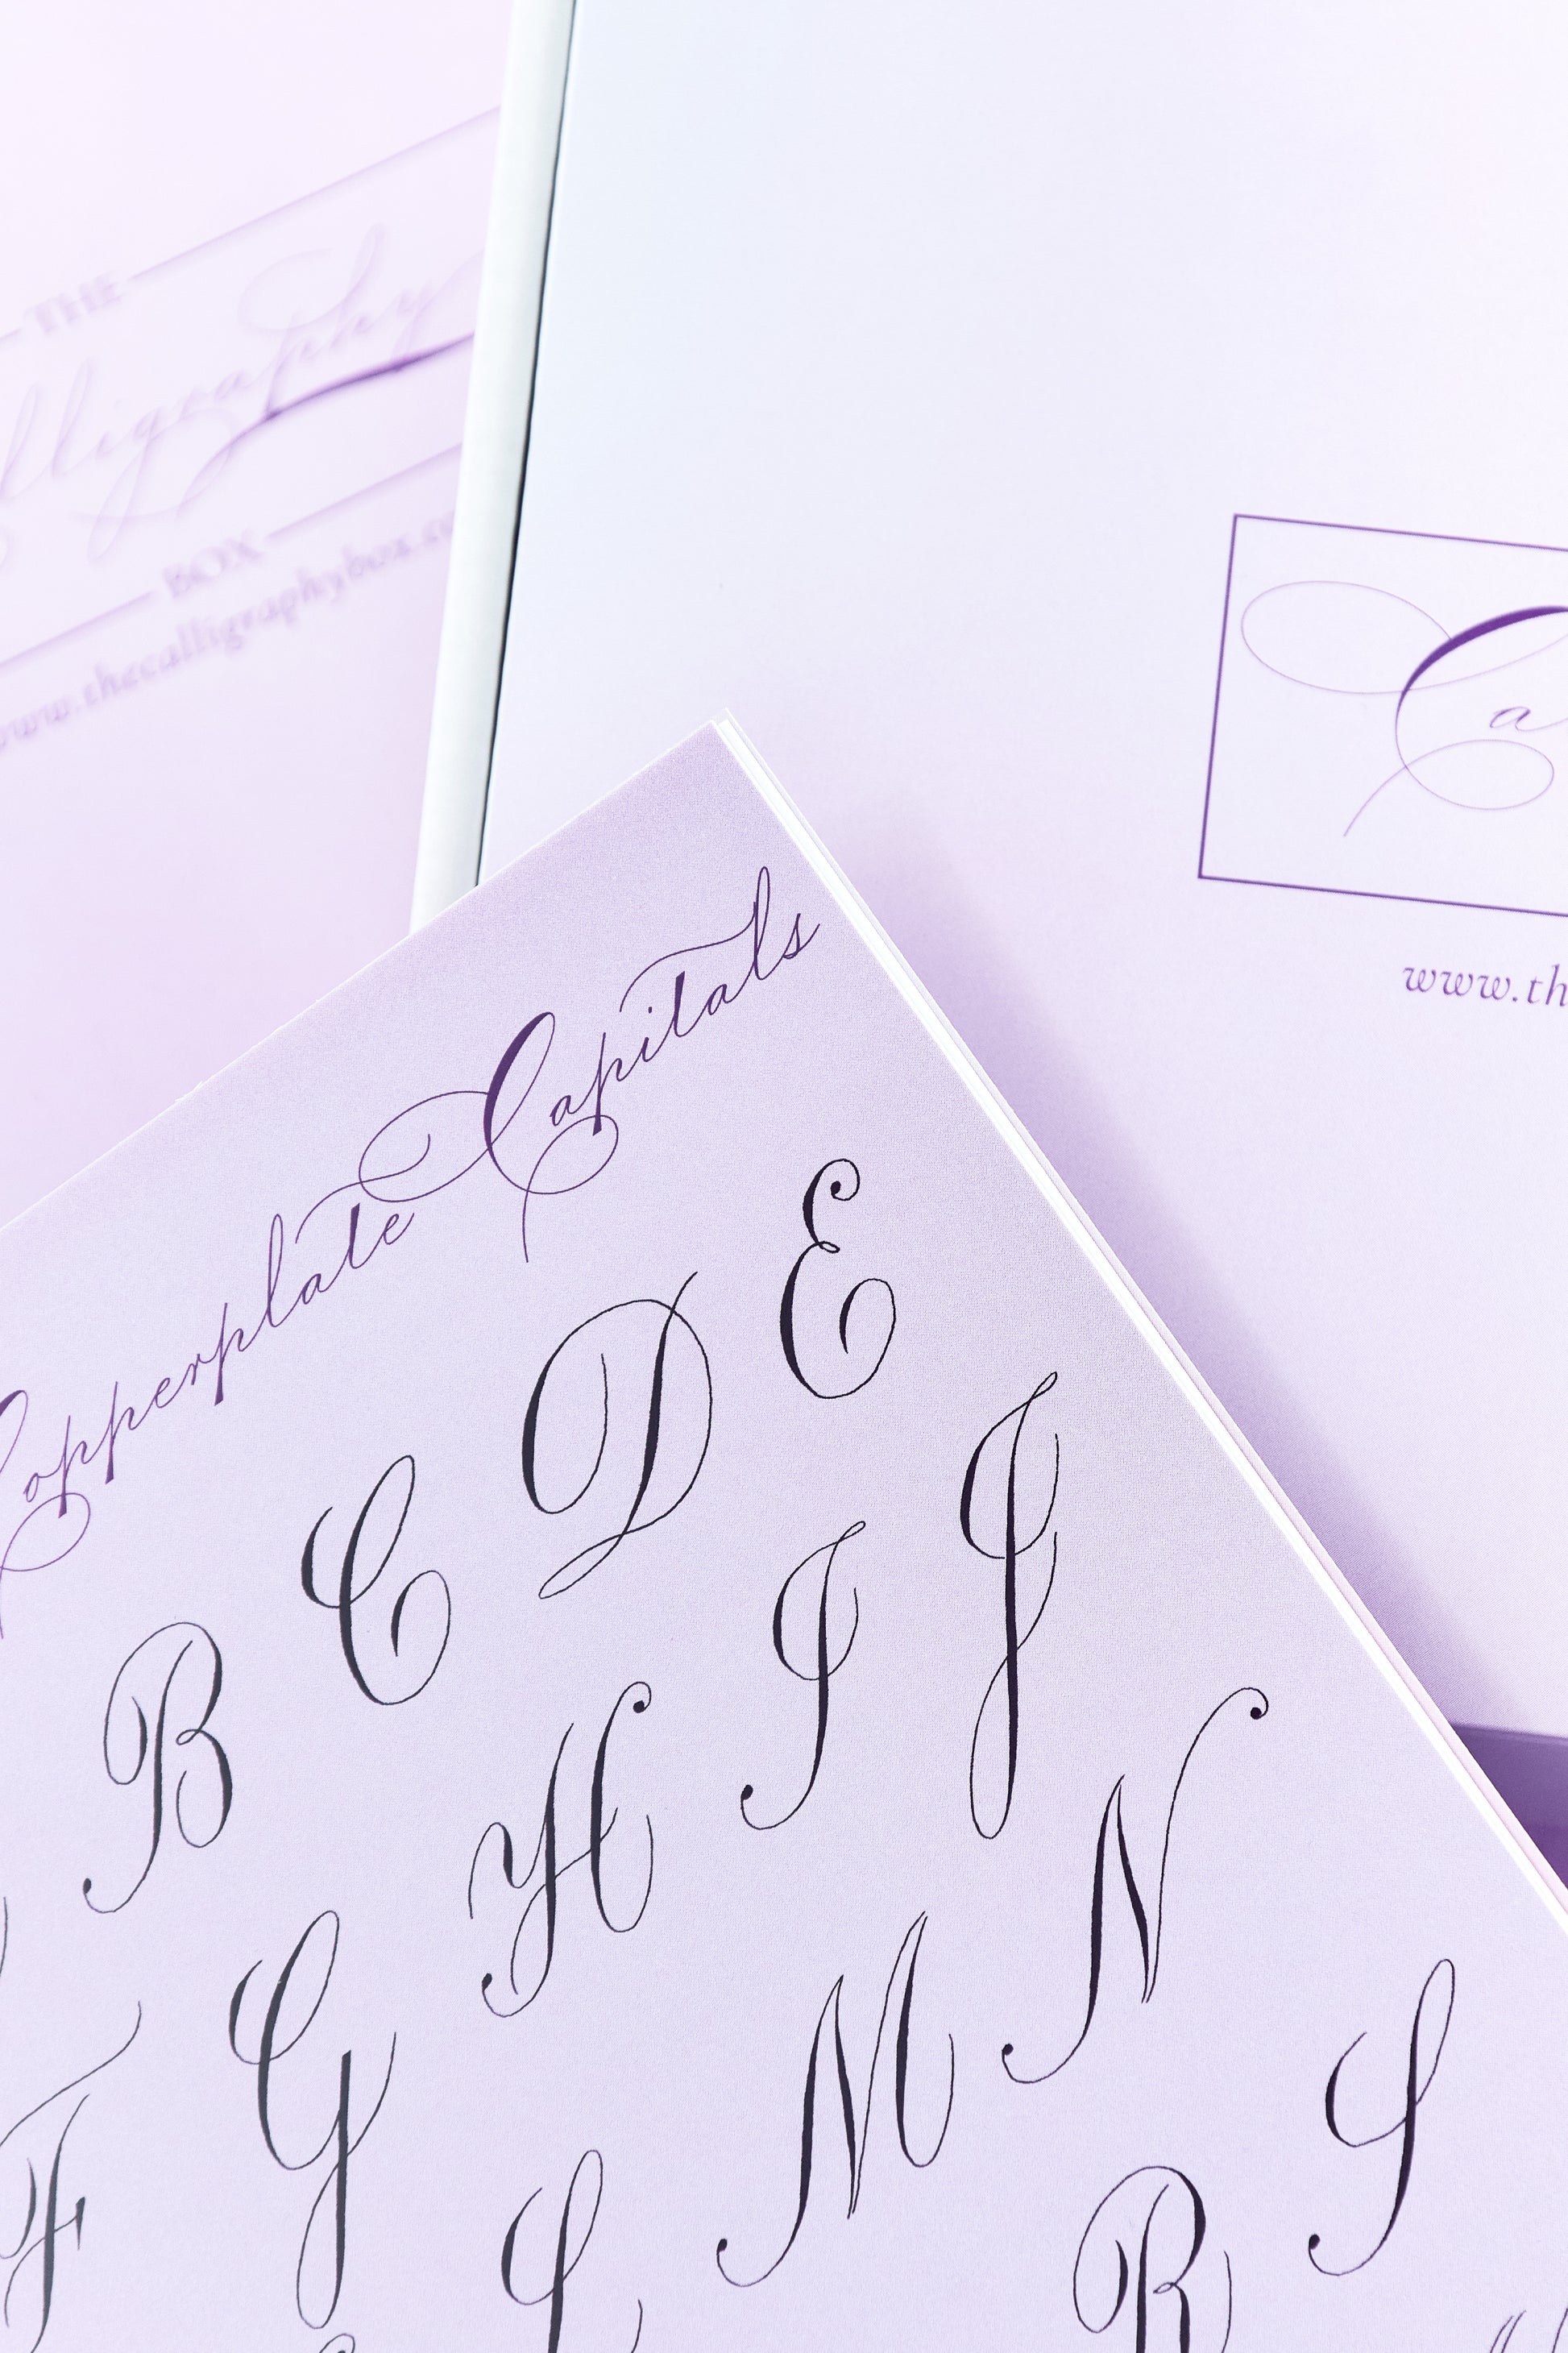 THE
alligraphy
BOX
www.thecalligraphybox.co
Ca
www.th
Copperplate Capitals
B C D E
F G H I J
L M N
R S